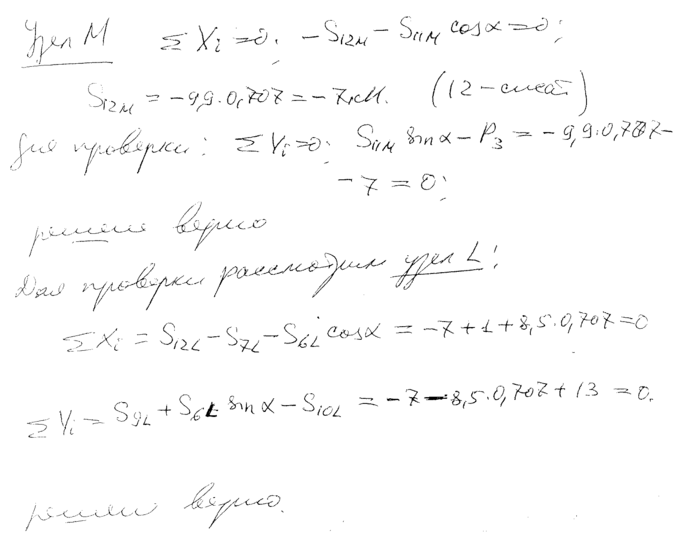 Узел M ΣXi=0; -S12M-S11M cosα=0;
S12M=-9,9·0,707=-7кН. (12-сжат)
Для проверки: ΣYi=0; S11M sinα-P3=-9,9·0,707-
-7=0;
решено верно
Для проверки рассмотрим узел L:
ΣXi=S12L-S7L-S6L cosα=-7+1+8,5·0,707=0
ΣYi=S9L+S6L sinα-S10L=-7-8,5·0,707+13=0.
решено верно.